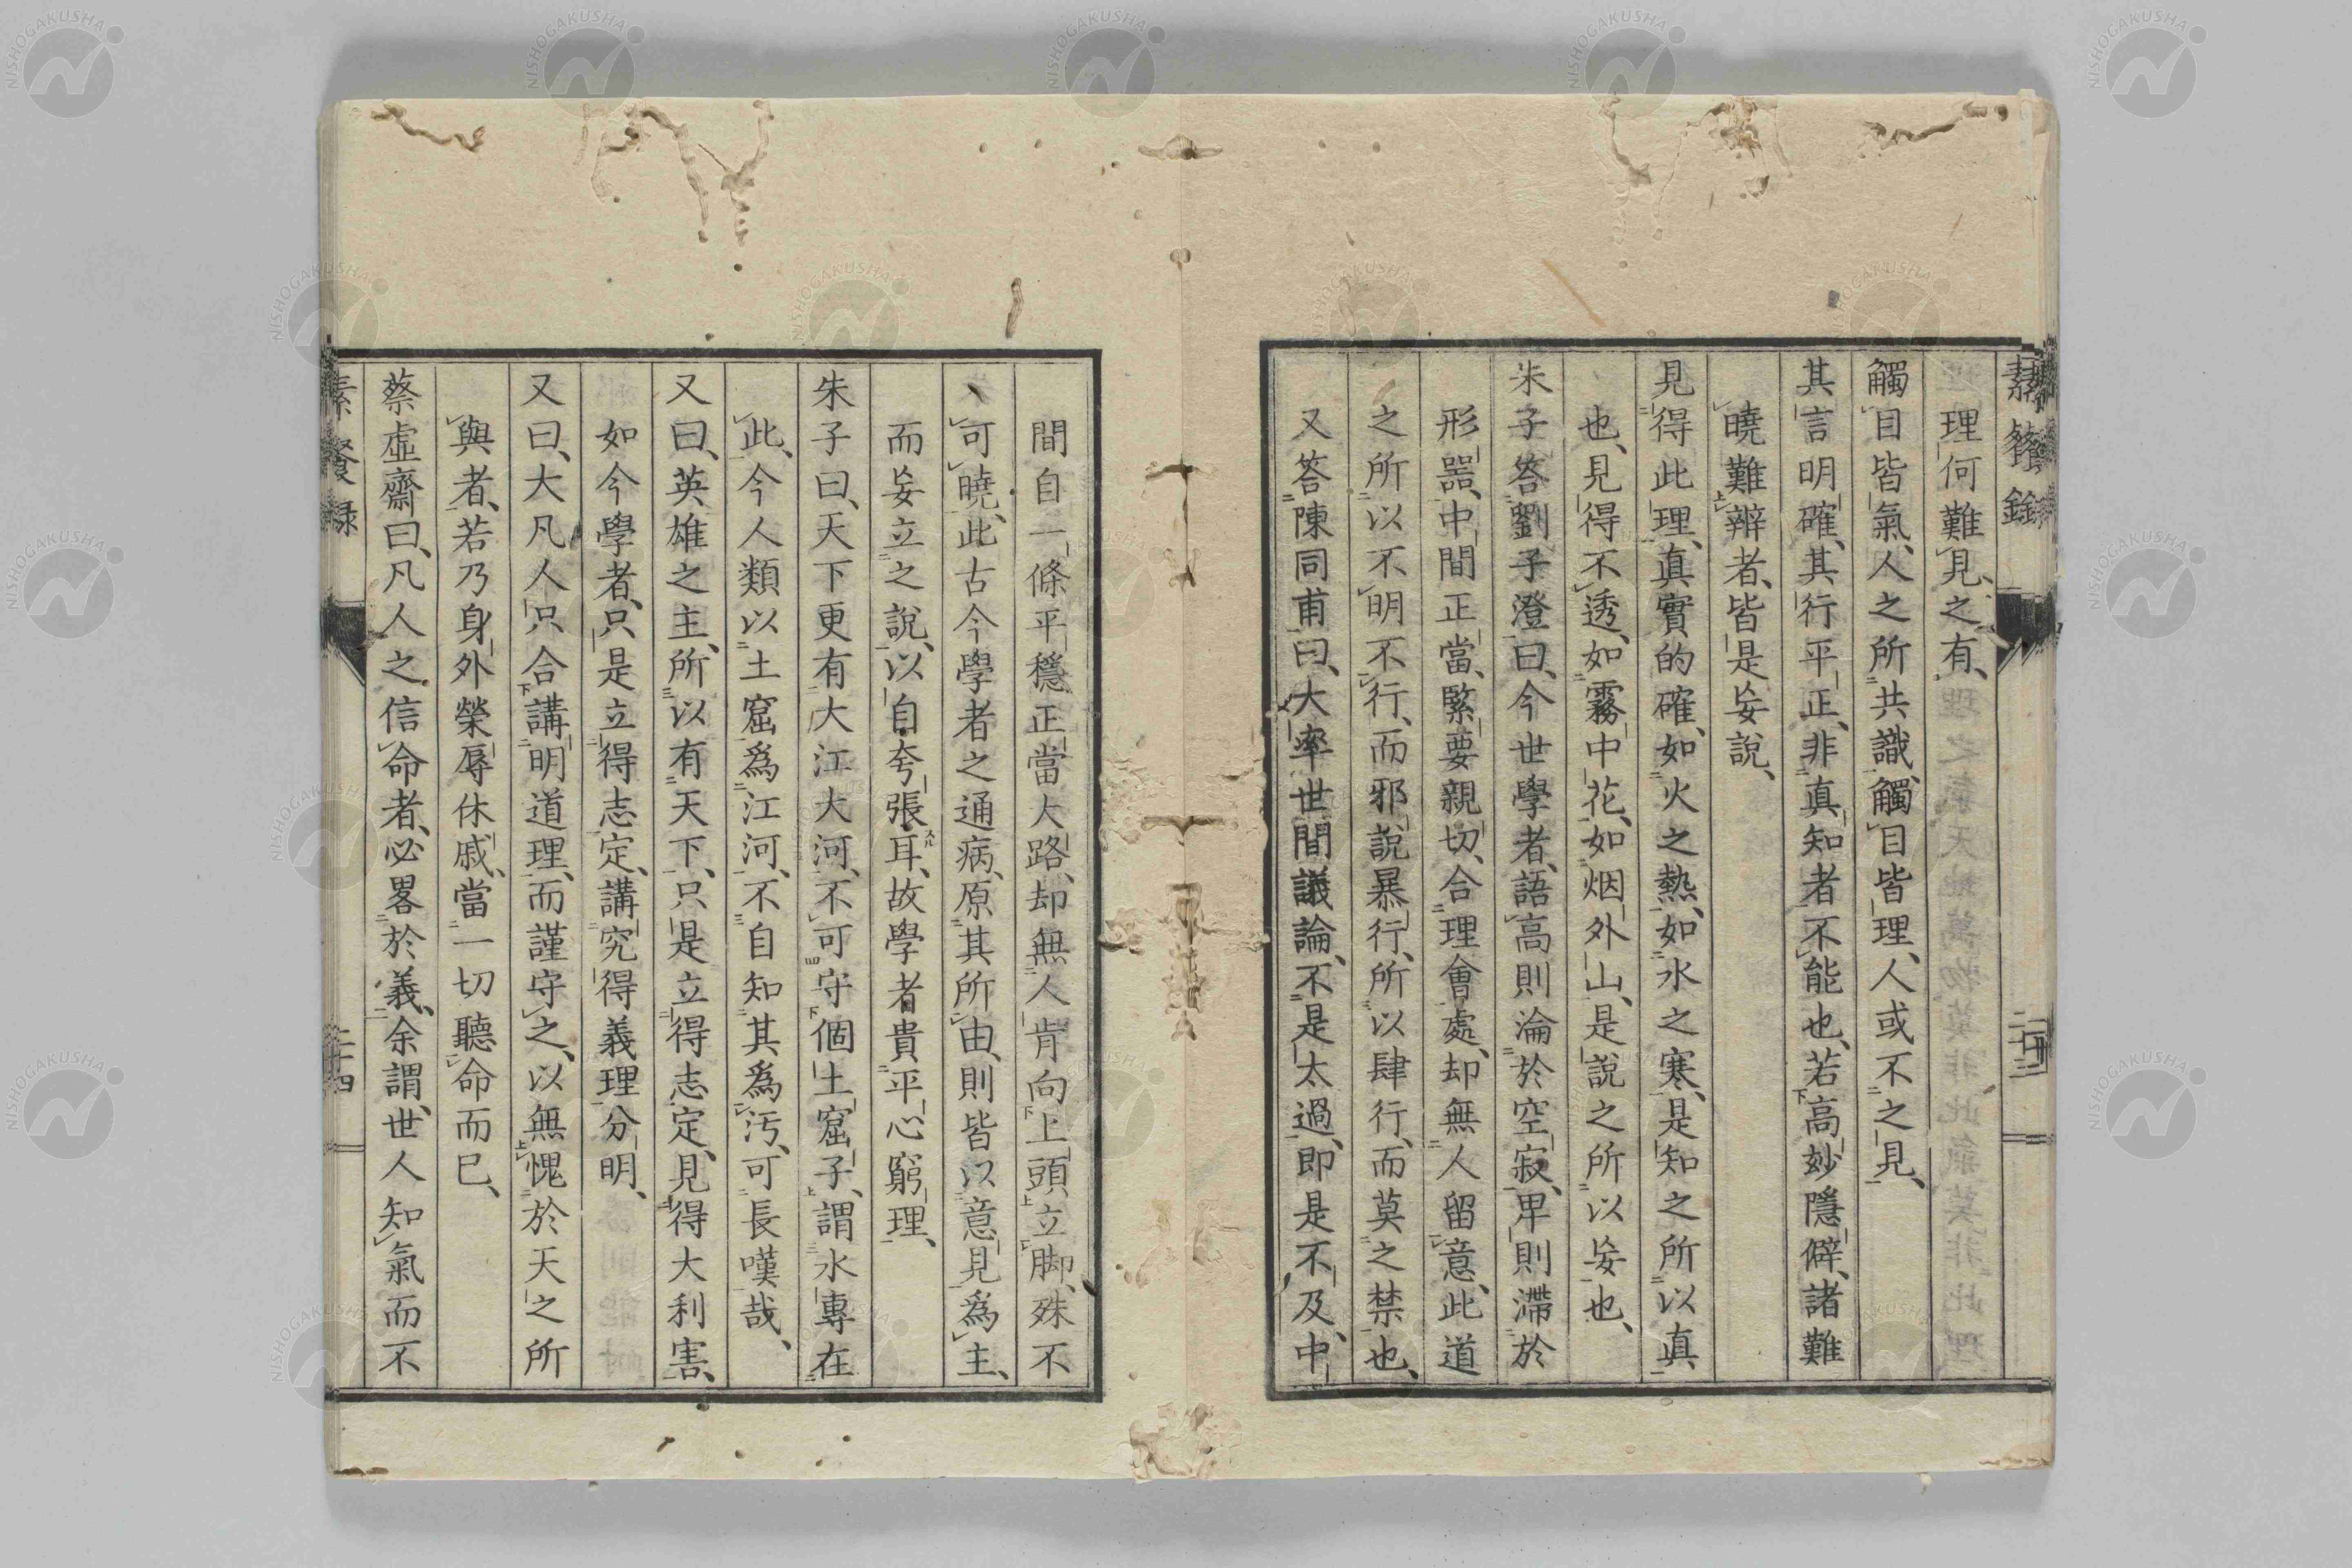 素餐録
二十三
理何難見之有、
觸目皆氣、人之所共識、觸目皆理、人或不之見、
其言明確、其行平正、非真知者不能也、若高妙隱僻、諸難
曉難辨者、皆是妄說、
見得此理、真實的確、如火之熱、如水之寒、是知之所以真
也、見得不透、如霧中花、如烟外山、是說之所以妄也、
朱子答劉子澄曰、今世學者、語高則淪於空寂、卑則滯於
形器、中間正當、緊要親切、合理會處、却無人留意、此道
之所以不明不行、而邪說暴行、所以肆行、而莫之禁也、
又答陳同甫曰、大率世間議論、不是太過、即是不及、中
間自一條平穩正當大路、却無人肯向上頭立脚、殊不
可曉、此古今學者之通病、原其所由、則皆以意見為主、
而妄立之說、以自夸張耳、故學者貴平心窮理、
朱子曰、天下更有大江大河、不可守個土窟子、謂水專在
此、今人類以土窟為江河、不自知其為汚、可長嘆哉、
又曰、英雄之主、所以有天下、只是立得志定、見得大利害、
如今學者、只是立得志定、講究得義理分明、
又曰、大凡人只合講明道理、而謹守之、以無愧於天之所
與者、若乃身外榮辱休戚、當一切聽命而已、
蔡虛齋曰、凡人之信命者、必畧於義、余謂、世人知氣而不
素餐録
二十四
NISHOGAKUSHA